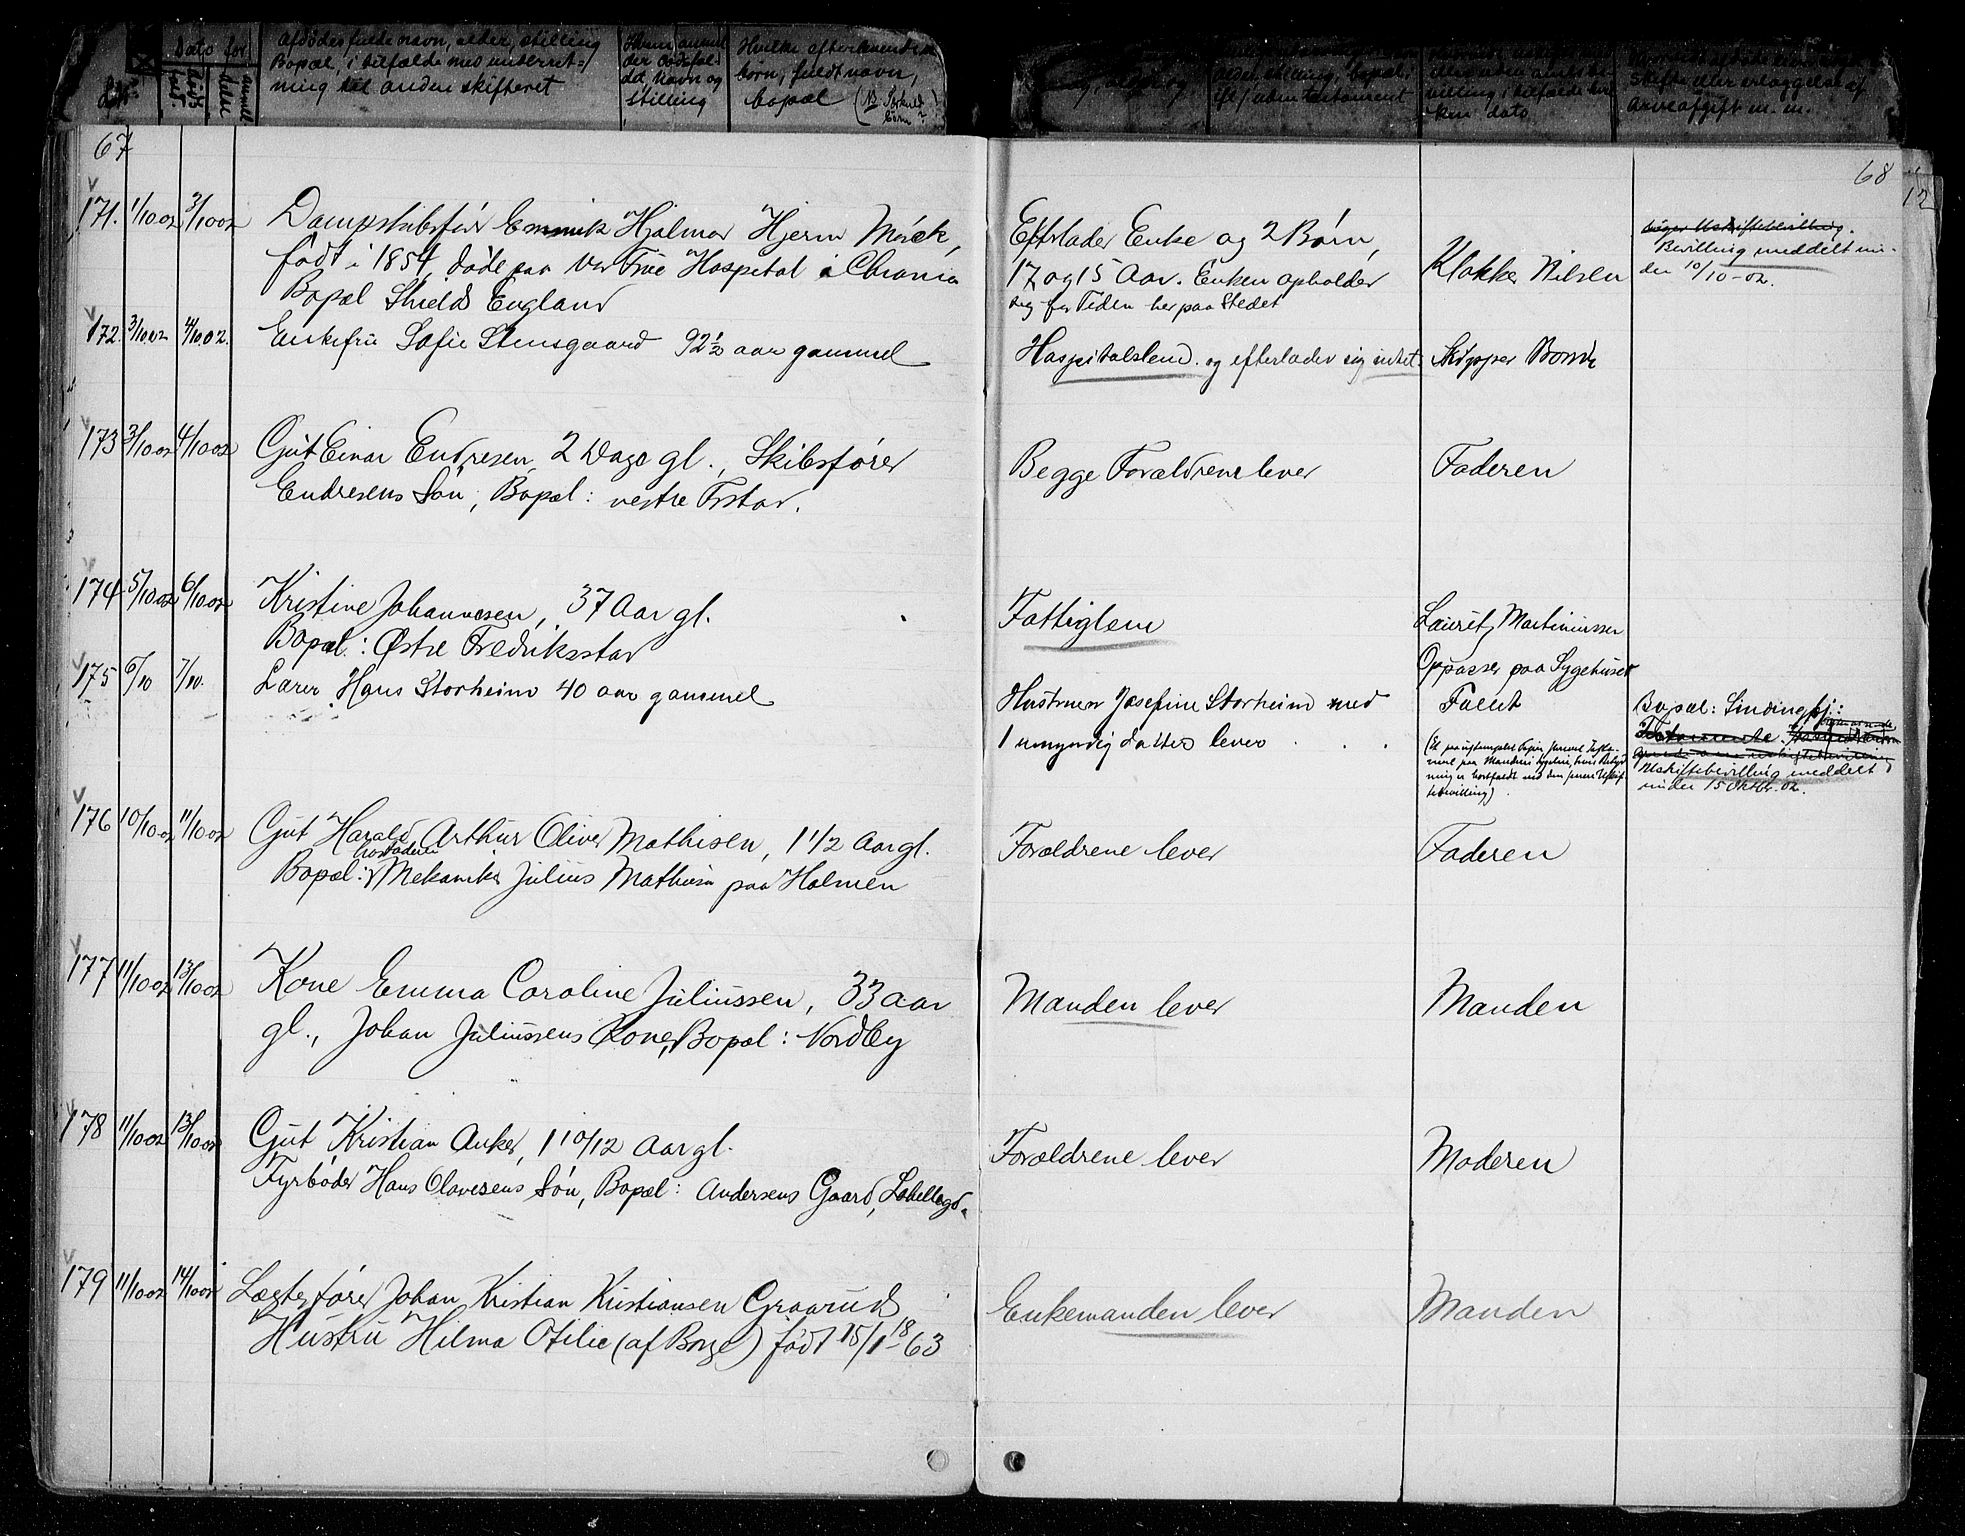 Dato for
døds
anmel
Afdødes fulde navn, alder, stilling
Bopæl, i tilfælde med underret-
ning til anden skifteret
Hvem anmel
der dødsfal-
det, navn og
stilling
Hvilke efterlevende
børn, fuldt navn,
bopæl
børn?
uden testament
ken dato
Skifte eller erlæggelse af
arveafgift m. m.
67
68
12
171. 1/10 02 3/10 02 Dampskibsfører Hjalmar Hjerm Mörck,
født i 1854, døde paa Vor Frue Hospital i Chrania
Bopæl Shields England
Efterlader Enke og 2 Børn,
17 og 15 Aar. Enken opholder
sig for Tiden her paa Stedet
Klokker Nilsen
Bevilling meddelt un-
der 10/10-02.
172. 3/10.02 4/10.02. Enkefru Sofie Stensgaard 92 1/2 aar gammel
Hospitalslem. og efterlader sig intet.
Skipper
173 3/10 02 4/10 02 Gut Einar Endresen, 2 Dage gl., Skibsfører
Endresens Søn, Bopæl: vestre Frstad.
Begge Forældrene lever
Faderen
174 5/10 02 6/10 02 Kristine Johannesen, 37 Aar gl.
Bopæl: Østre Fredriksstad
Fattiglem
Lauritz Martiniussen
Oppasser paa Sygehuset
175 6/10 7/10. Lærer Hans Storheim 40 aar gammel
Hustruen Josefine Storheim med
1 umyndig datter lever . . .
Bopæl:
Utskiftebevilling meddelt
under 15 Oktbr. 02.
176 10/10 02 11/10 02 Gut Harald Arthur Oliver Mathisen, 1 1/2 Aar gl.
hos faderen
Bopæl: Mekaniker Julius Mathisen paa Holmen
Forældrene lever
Faderen
177 11/10 02 13/10 02 Kone Emma Caroline Juliussen, 33 aar
gl., Johan Juliussens Kone, Bopæl: Nordby
Manden lever
Manden
178 11/10 02 13/10 02 Gut Kristian Anker, 1 10/12 Aar gl.
Fyrbøder Hans Olavesens Søn, Bopæl: Andersens Gaard,
Forældrene lever
Moderen
179 11/10 02 14/10 02 Lægterfører Johan Kristian Kristiansen Graarud
Hustru Hilma Otilie (af Borge) født 15/1 1863
Enkemanden lever
Manden